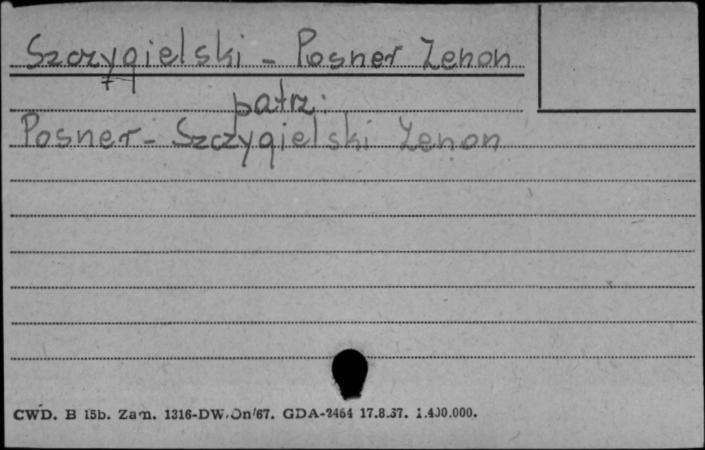 Szczygielski - Posner Zenon
patrz:
Posner - Szczygielski Zenon
CWD. B 15b. Zam. 1316-DW/On/67. GDA-2464 17.8.67. 1.400.000.